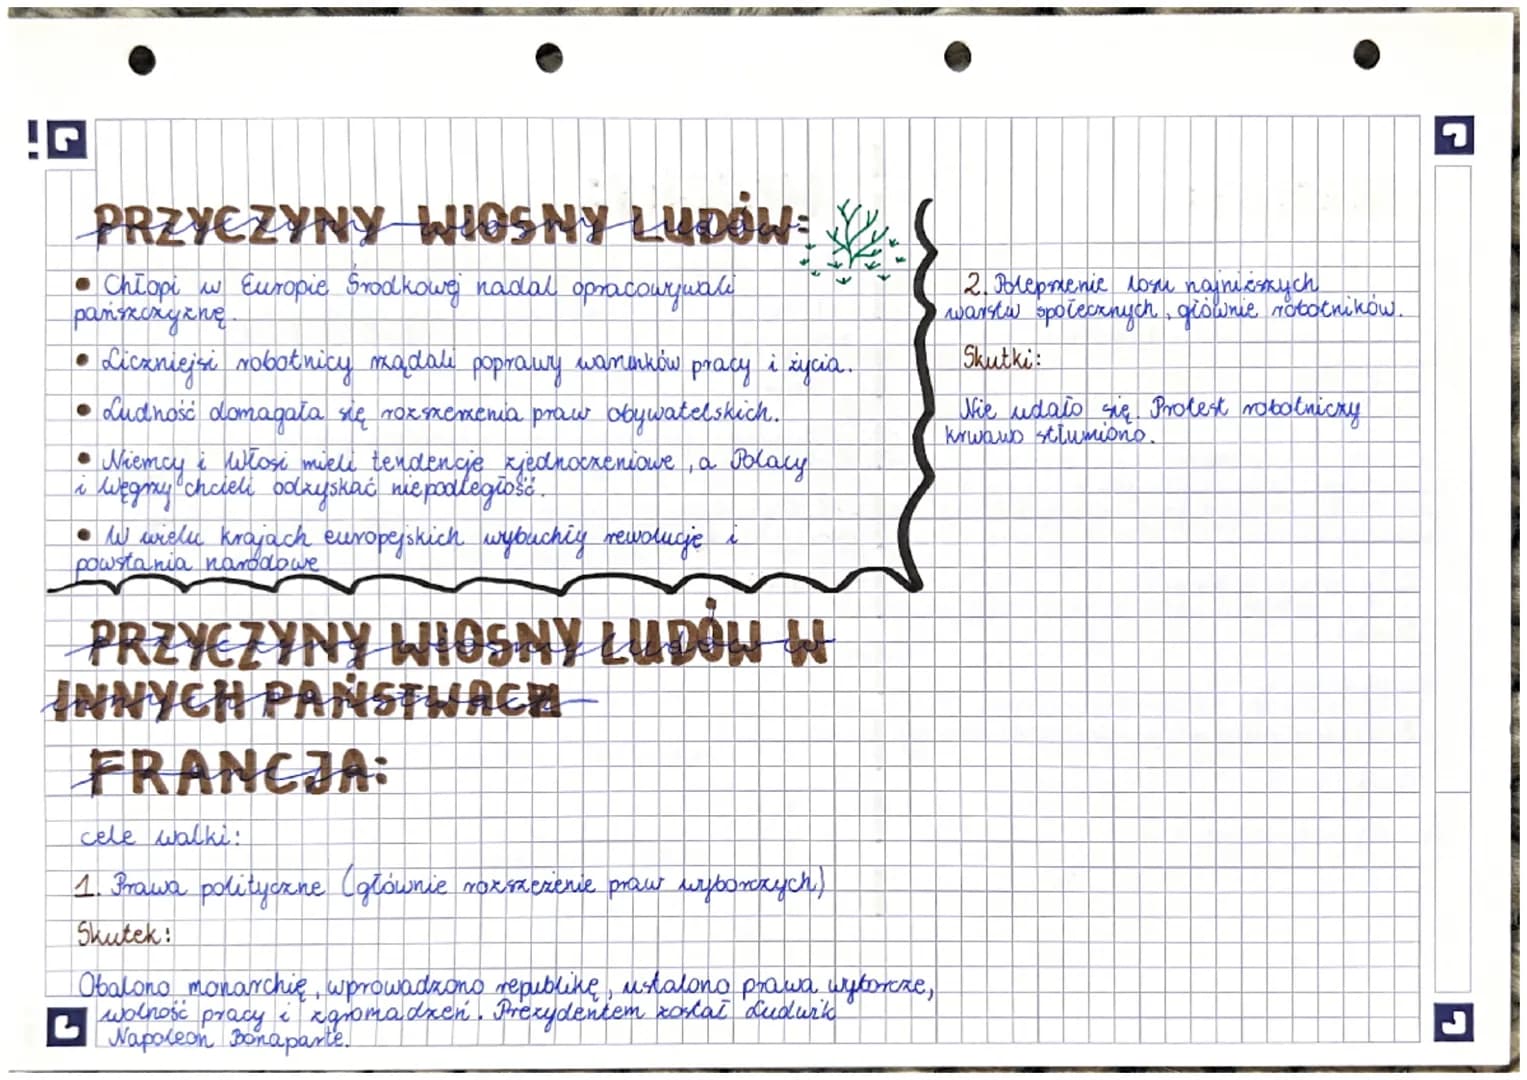 PRZYCZYNY WIOSNY LUDÓW:
• Chłopi w Europie Środkowej nadal opracowywali
pańszczyznę.
• Liczniejsi robotnicy rządali poprawy warunków pracy i życia.
• Ludność domagała się rozszerzenia praw obywatelskich.
• Niemcy i Włosi mieli tendencje zjednoczeniowe, a Polacy
i Węgrzy chcieli odzyskać niepodległość.
• W wielu krajach europejskich wybuchły rewolucje i
powstania narodowe
PRZYCZYNY WIOSNY LUDÓW W
INNYCH PAŃSTWACH
FRANCJA:
cele walki:
1. Prawa polityczne (głównie rozszerzenie praw wyborczych)
Skutek:
Obalono monarchię, wprowadzono republikę, ustalono prawa wyborcze,
wolność pracy i zgromadzeń. Prezydentem został Ludwik
Napoleon Bonaparte.
2. Polepszenie losu najniższych
warstw społecznych, głównie robotników.
Skutki:
Nie udało się. Protest robotniczy
krwawo stłumiono.